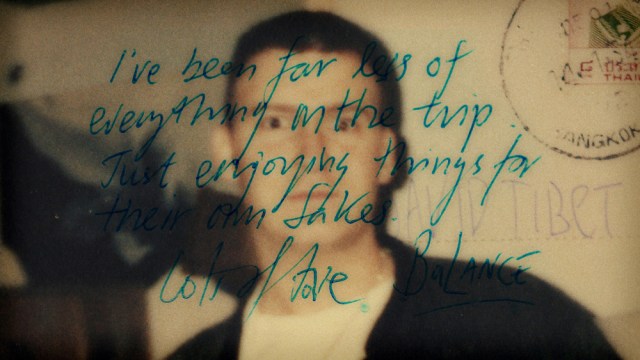 I've been far less of
everything on the trip.
Just enjoying things for
their own sakes.
Lots of love BaLANCE
DE 01
THAI
BANGKOK
DAVID TIBET